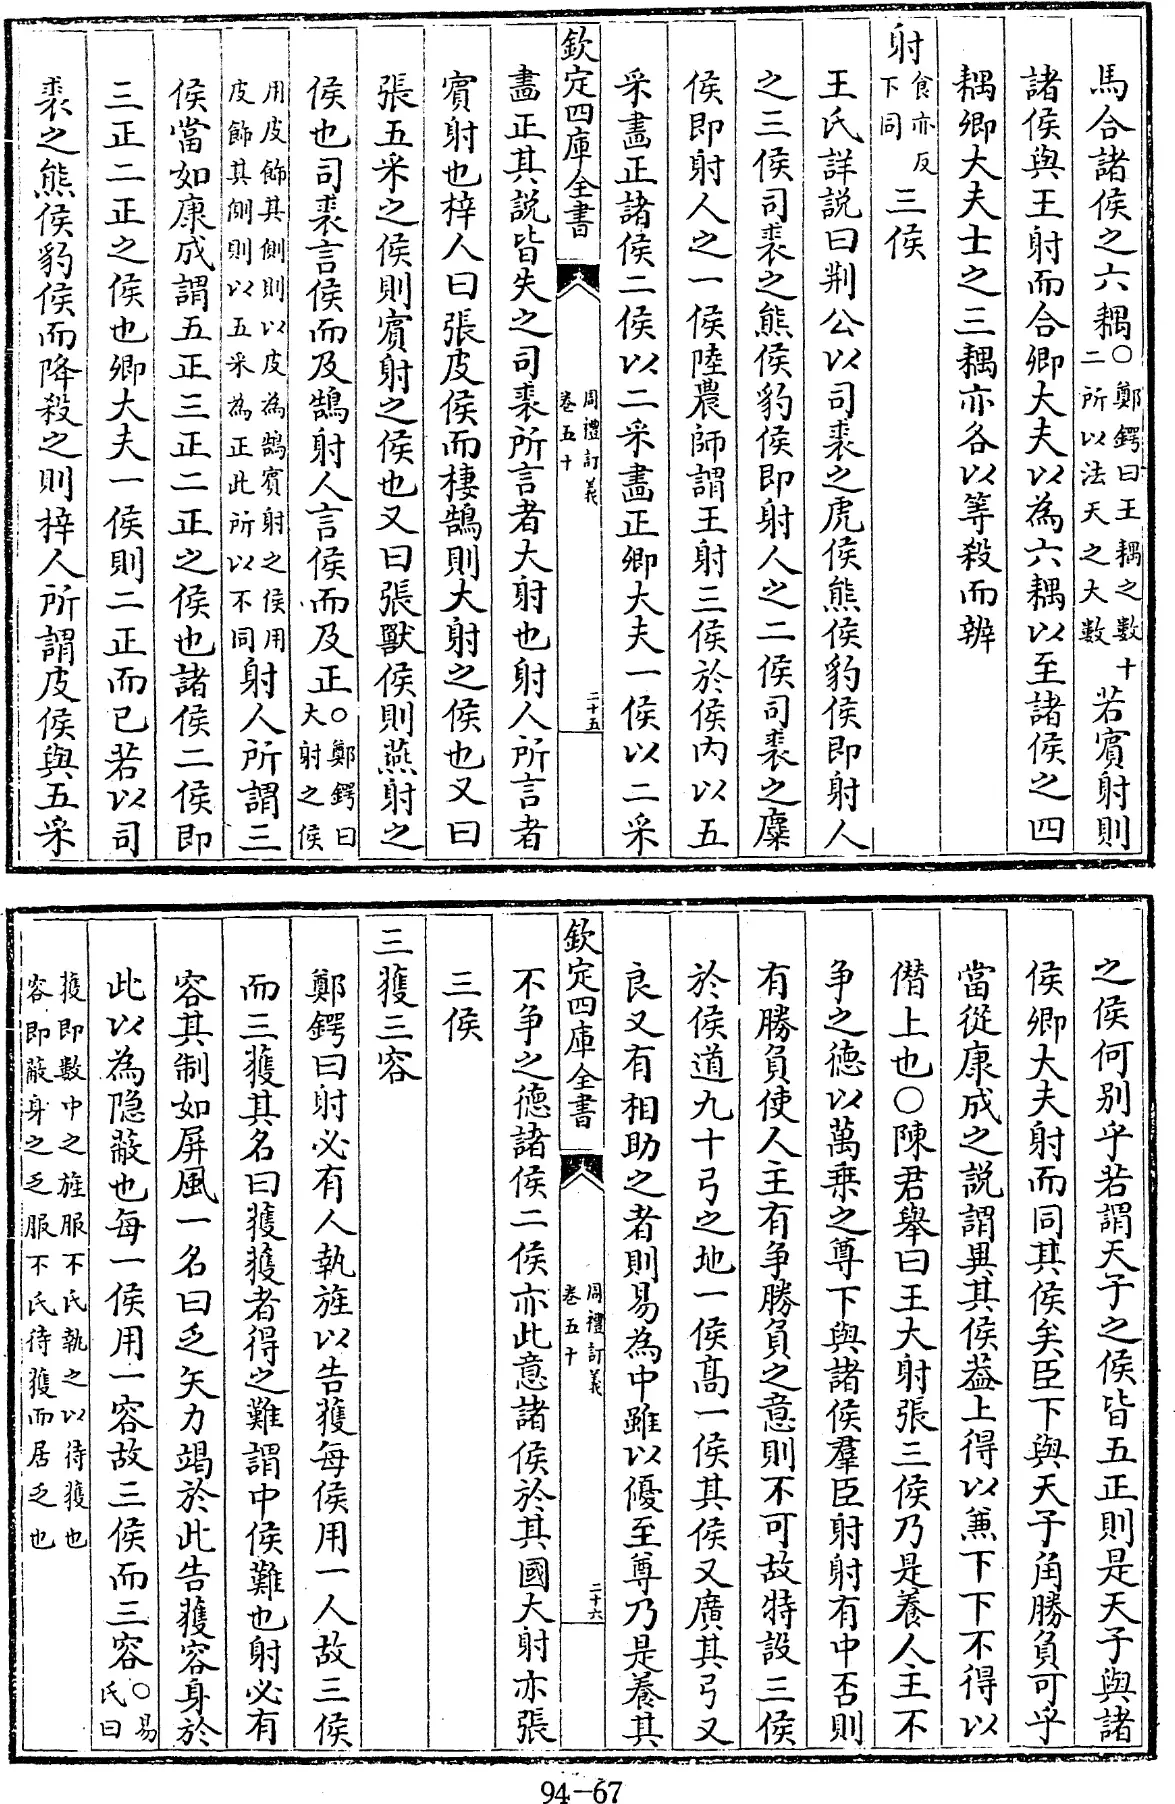 馬合諸侯之六耦○鄭鍔曰王耦之數十二所以法天之大數若賓射則
諸侯與王射而合卿大夫以為六耦以至諸侯之四
耦卿大夫士之三耦亦各以等殺而辨
射食亦反下同三侯
王氏詳說曰荆公以司裘之虎侯熊侯豹侯即射人
之三侯司裘之熊侯豹侯即射人之二侯司裘之麋
侯即射人之一侯陸農師謂王射三侯於侯内以五
采畫正諸侯二侯以二采畫正卿大夫一侯以二采
欽定四庫全書
周禮訂義
卷五十
二十五
畫正其說皆失之司裘所言者大射也射人所言者
賓射也梓人曰張皮侯而棲鵠則大射之侯也又曰
張五采之侯則賓射之侯也又曰張獸侯則燕射之
侯也司裘言侯而及鵠射人言侯而及正○鄭鍔曰大射之侯
用皮飾其側則以皮為鵠賓射之侯用皮飾其側則以五采為正此所以不同射人所謂三
侯當如康成謂五正三正二正之侯也諸侯二侯即
三正二正之侯也卿大夫一侯則二正而已若以司
裘之熊侯豹侯而降殺之則梓人所謂皮侯與五采
之侯何别乎若謂天子之侯皆五正則是天子與諸
侯卿大夫射而同其侯矣臣下與天子角勝負可乎
當從康成之說謂異其侯葢上得以兼下下不得以
僣上也○陳君舉曰王大射張三侯乃是養人主不
争之德以萬乗之尊下與諸侯羣臣射射有中否則
有勝負使人主有争勝負之意則不可故特設三侯
於侯道九十弓之地一侯高一侯其侯又廣其弓又
良又有相助之者則易為中雖以優至尊乃是養其
欽定四庫全書
周禮訂義
卷五十
二十六
不争之德諸侯二侯亦此意諸侯於其國大射亦張
三侯
三獲三容
鄭鍔曰射必有人執旌以告獲每侯用一人故三侯
而三獲其名曰獲獲者得之難謂中侯難也射必有
容其制如屏風一名曰乏矢力竭於此告獲容身於
此以為隠蔽也每一侯用一容故三侯而三容○易氏曰
獲即數中之旌服不氏執之以待獲也容即蔽身之乏服不氏待獲而居乏也
94-67